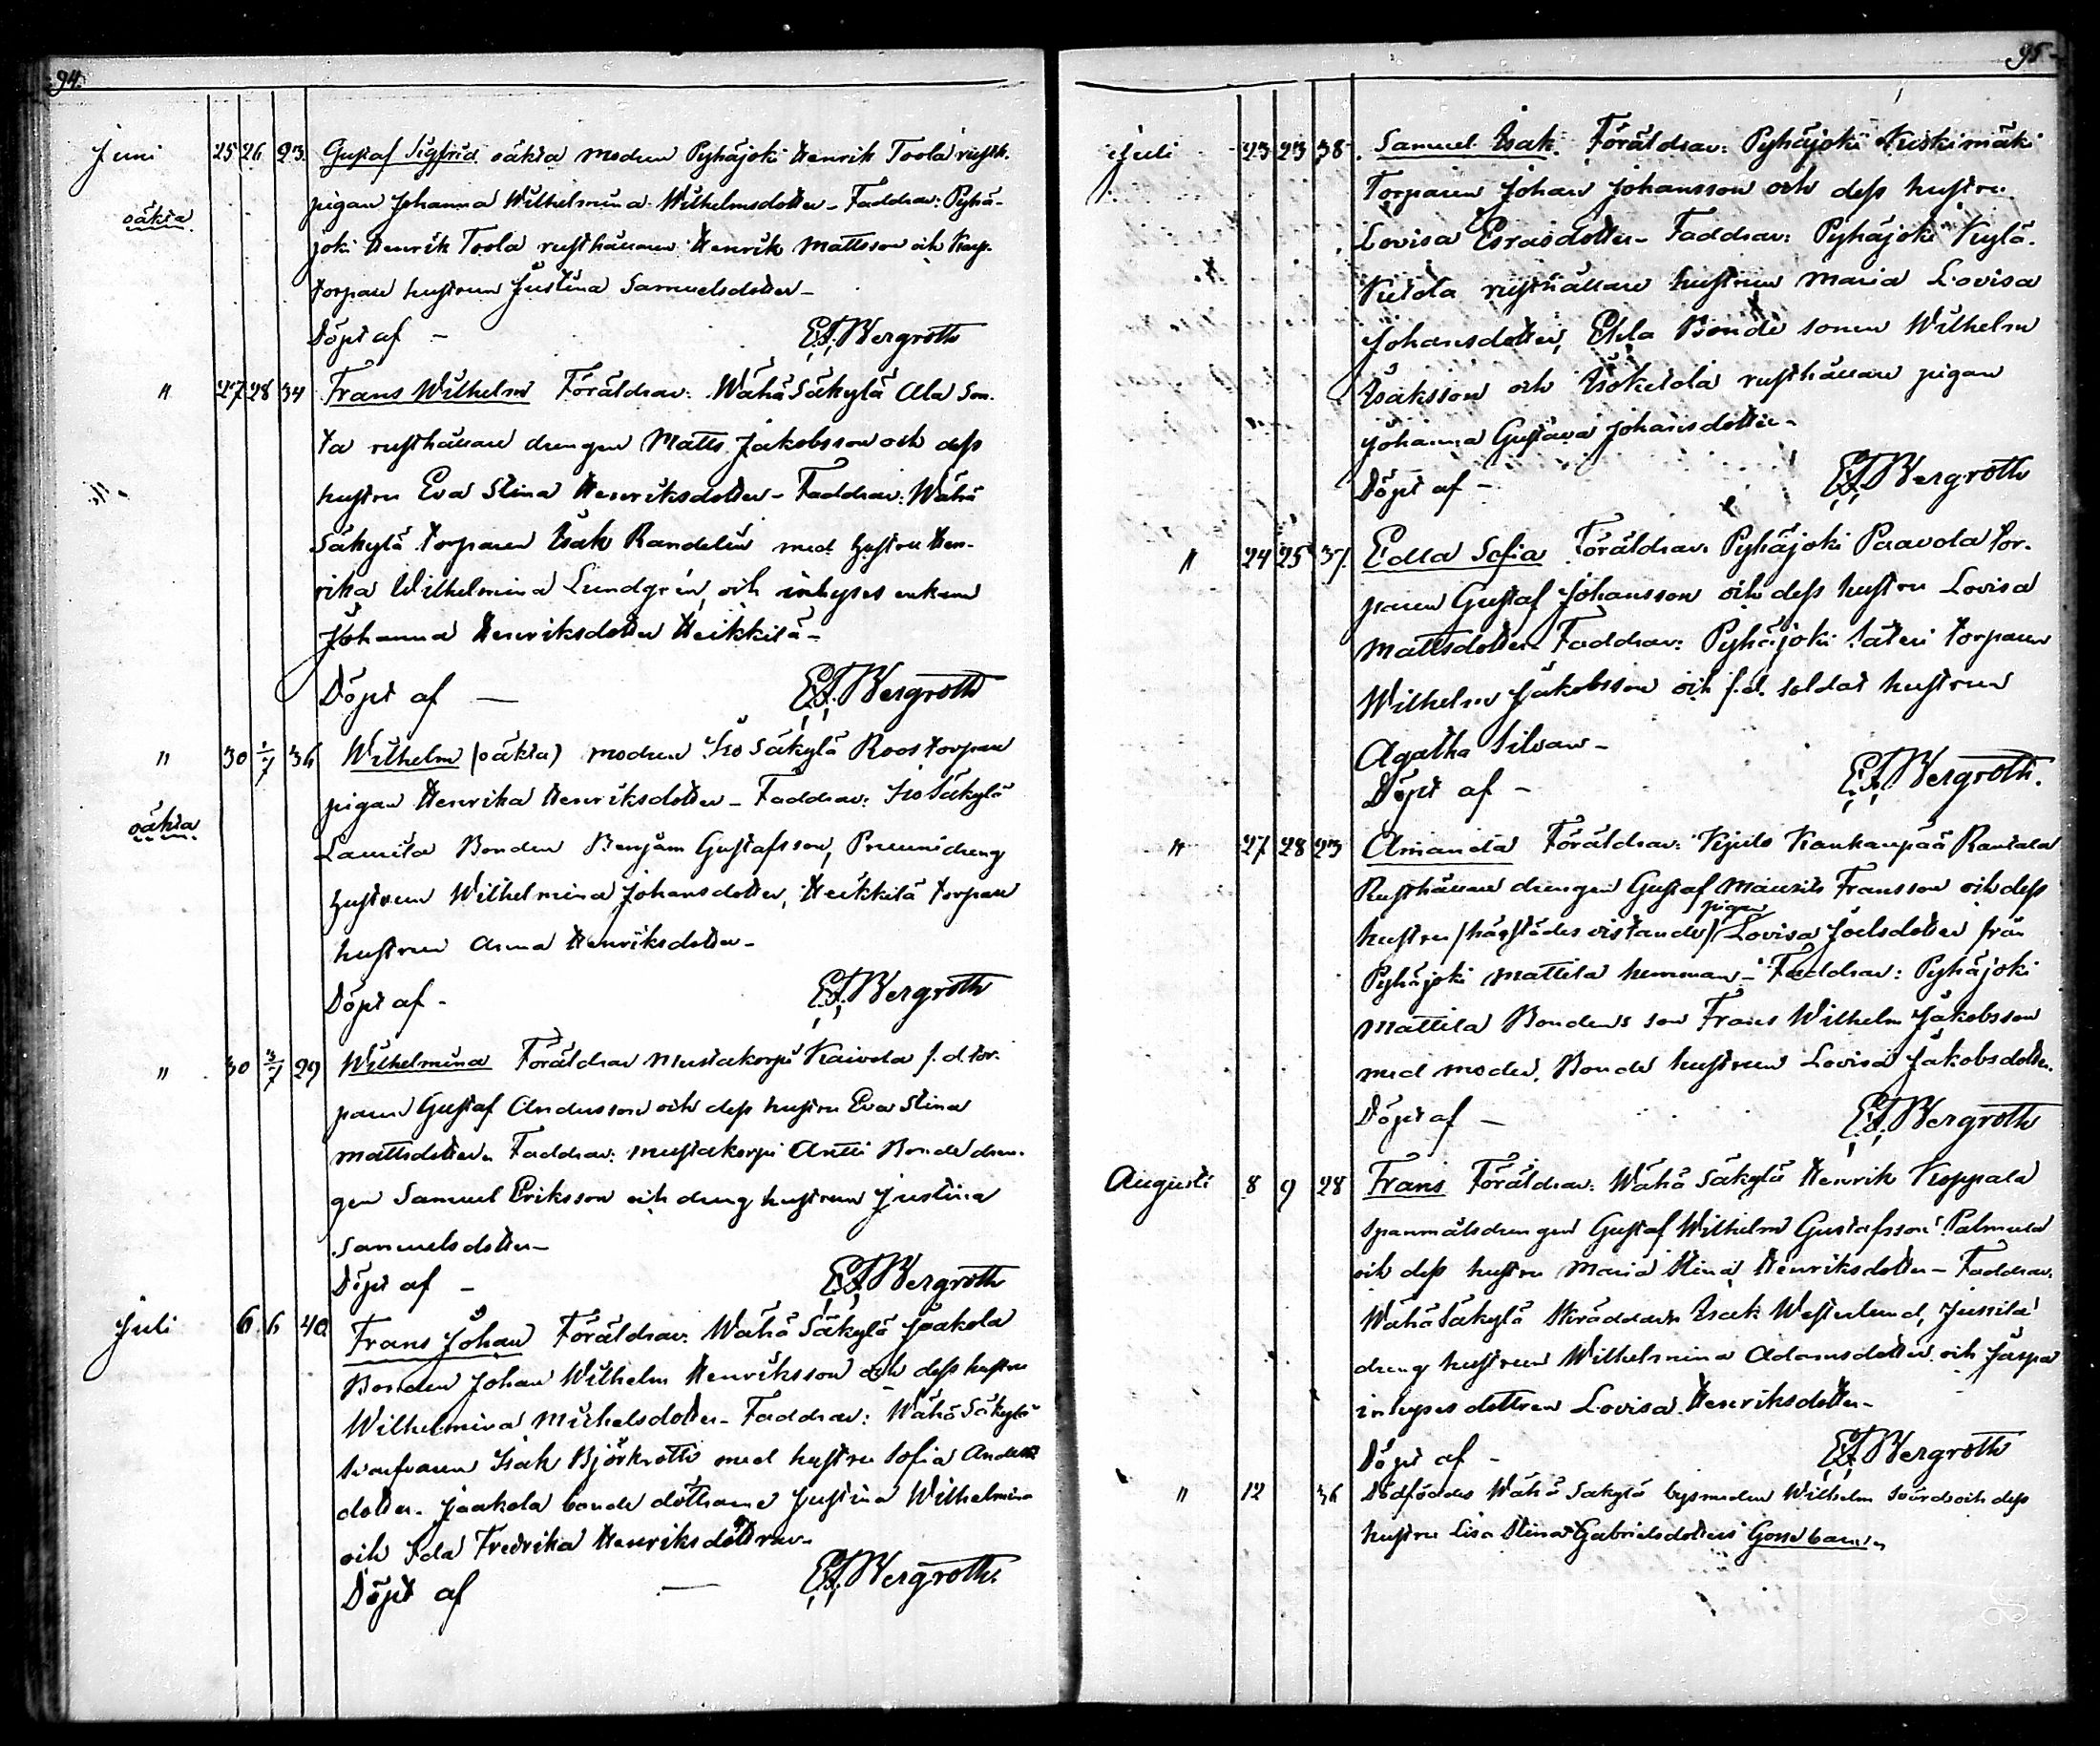 94.
Juni 25 26 23. Gustaf Sigfrid oäkta modren Pyhäjoki Henrik Toola rusth.
oäkta pigan Johanna Wilhelmina Wilhelmsdotter – Faddrar: Pyhä-
joki Henrik Toola rusthållaren Henrik Mattsson och
torpare hustrun Justina Samuelsdotter –
Döpt af – E.F. Bergroth
" 27 28 34 Frans Wilhelm Föräldrar: Wähä Säkylä Ala Son-
ta rusthållare drengen Matts Jakobsson och dess
hustru Eva Stina Henriksdotter – Faddrar: Wähä
Säkylä torparen Isak Randelin med hustru Hen-
rika Wilhelmina Lundgren, och inhyses enkan
Johanna Henriksdotter Heikkilä –
Döpt af — E.F. Bergroth
" 30 1/7 36 Wilhelm (oäkta) modren Iso Säkylä Roos torpare
oäkta pigan Henrika Henriksdotter – Faddrar: Iso Säkylä
Laurila Bonden Benjam Gustafsson, Prunni dreng
hustrun Wilhelmina Johansdotter, Heikkilä torpare
hustrun Anna Henriksdotter –
Döpt af – E.F. Bergroth
" 30 3/7 29 Wilhelmina Föräldrar Mustakorpi Kaivola f.d. tor-
paren Gustaf Andersson och dess hustru Eva Stina
Mattsdotter – Faddrar: Mustakorpi Antti Bonde dren-
gen Samuel Eriksson och dreng hustrun Justina
Samuelsdotter –
Döpt af – E.F. Bergroth
Juli 6 6 40 Frans Johan Föräldrar: Wähä Säkylä Jaakola
Bonden Johan Wilhelm Henriksson och dess hustru
Wilhelmina Michelsdotter – Faddrar: Wähä Säkylä
Isak Björkroth med hustru Sofia Anders
dotter. Jaakola bonde döttrarne Justina Wilhelmina
och Ida Fredrika Henriksdöttrar –
Döpt af — E.F. Bergroth.
95
Juli 23 23 38. Samuel Isak. Föräldrar: Pyhäjoki Kuskimäki
Torparen Johan Johansson och dess hustru
Lovisa Esrasdotter – Faddrar: Pyhäjoki
rusthållare hustrun Maria Lovisa
Johansdotter, Bonde sonen Wilhelm
Isaksson och rusthållare pigan
Johanna Gustava Johansdotter –
Döpt af – E.F. Bergroth
" 24 25 37. Edla Sofia Föräldrar: Pyhäjoki Paavola tor-
paren Gustaf Johansson och dess hustru Lovisa
Mattsdotter – Faddrar: Pyhäjoki Säteri torparen
Wilhelm Jakobsson och f.d. soldat hustrun
Agatha Silvan –
Döpt af – E.F. Bergroth.
" 27 28 23 Amanda Föräldrar: Kjulo Kankaanpää Rantala
Rusthållare drengen Gustaf Maurits Fransson och dess
hustru (härstädes vistande) pigan Lovisa Joelsdotter från
Pyhäjoki Mattila hemman – Faddrar: Pyhäjoki
Mattila Bondens son Frans Wilhelm Jakobsson
med moder, Bonde hustrun Lovisa Jakobsdotter.
Döpt af – E.F. Bergroth
Augusti 8 9 28 Frans Föräldrar: Wähä Säkylä Henrik Keppala
spanmålsdrengen Gustaf Wilhelm Gustafsson
och dess hustru Maria Stina Henriksdotter – Faddrar:
Wähä Säkylä Skräddarn Isak Westerlund, Jussila
dreng hustrun Wilhelmina Adamsdotter och Juspa
inhyses dottren Lovisa Henriksdotter –
Döpt af – E.F. Bergroth
" 12 36 Dödföddes Wähä Säkylä bysmeden Wilhelm och dess
hustru Lisa Stina Gabrielsdotters Gossebarn –